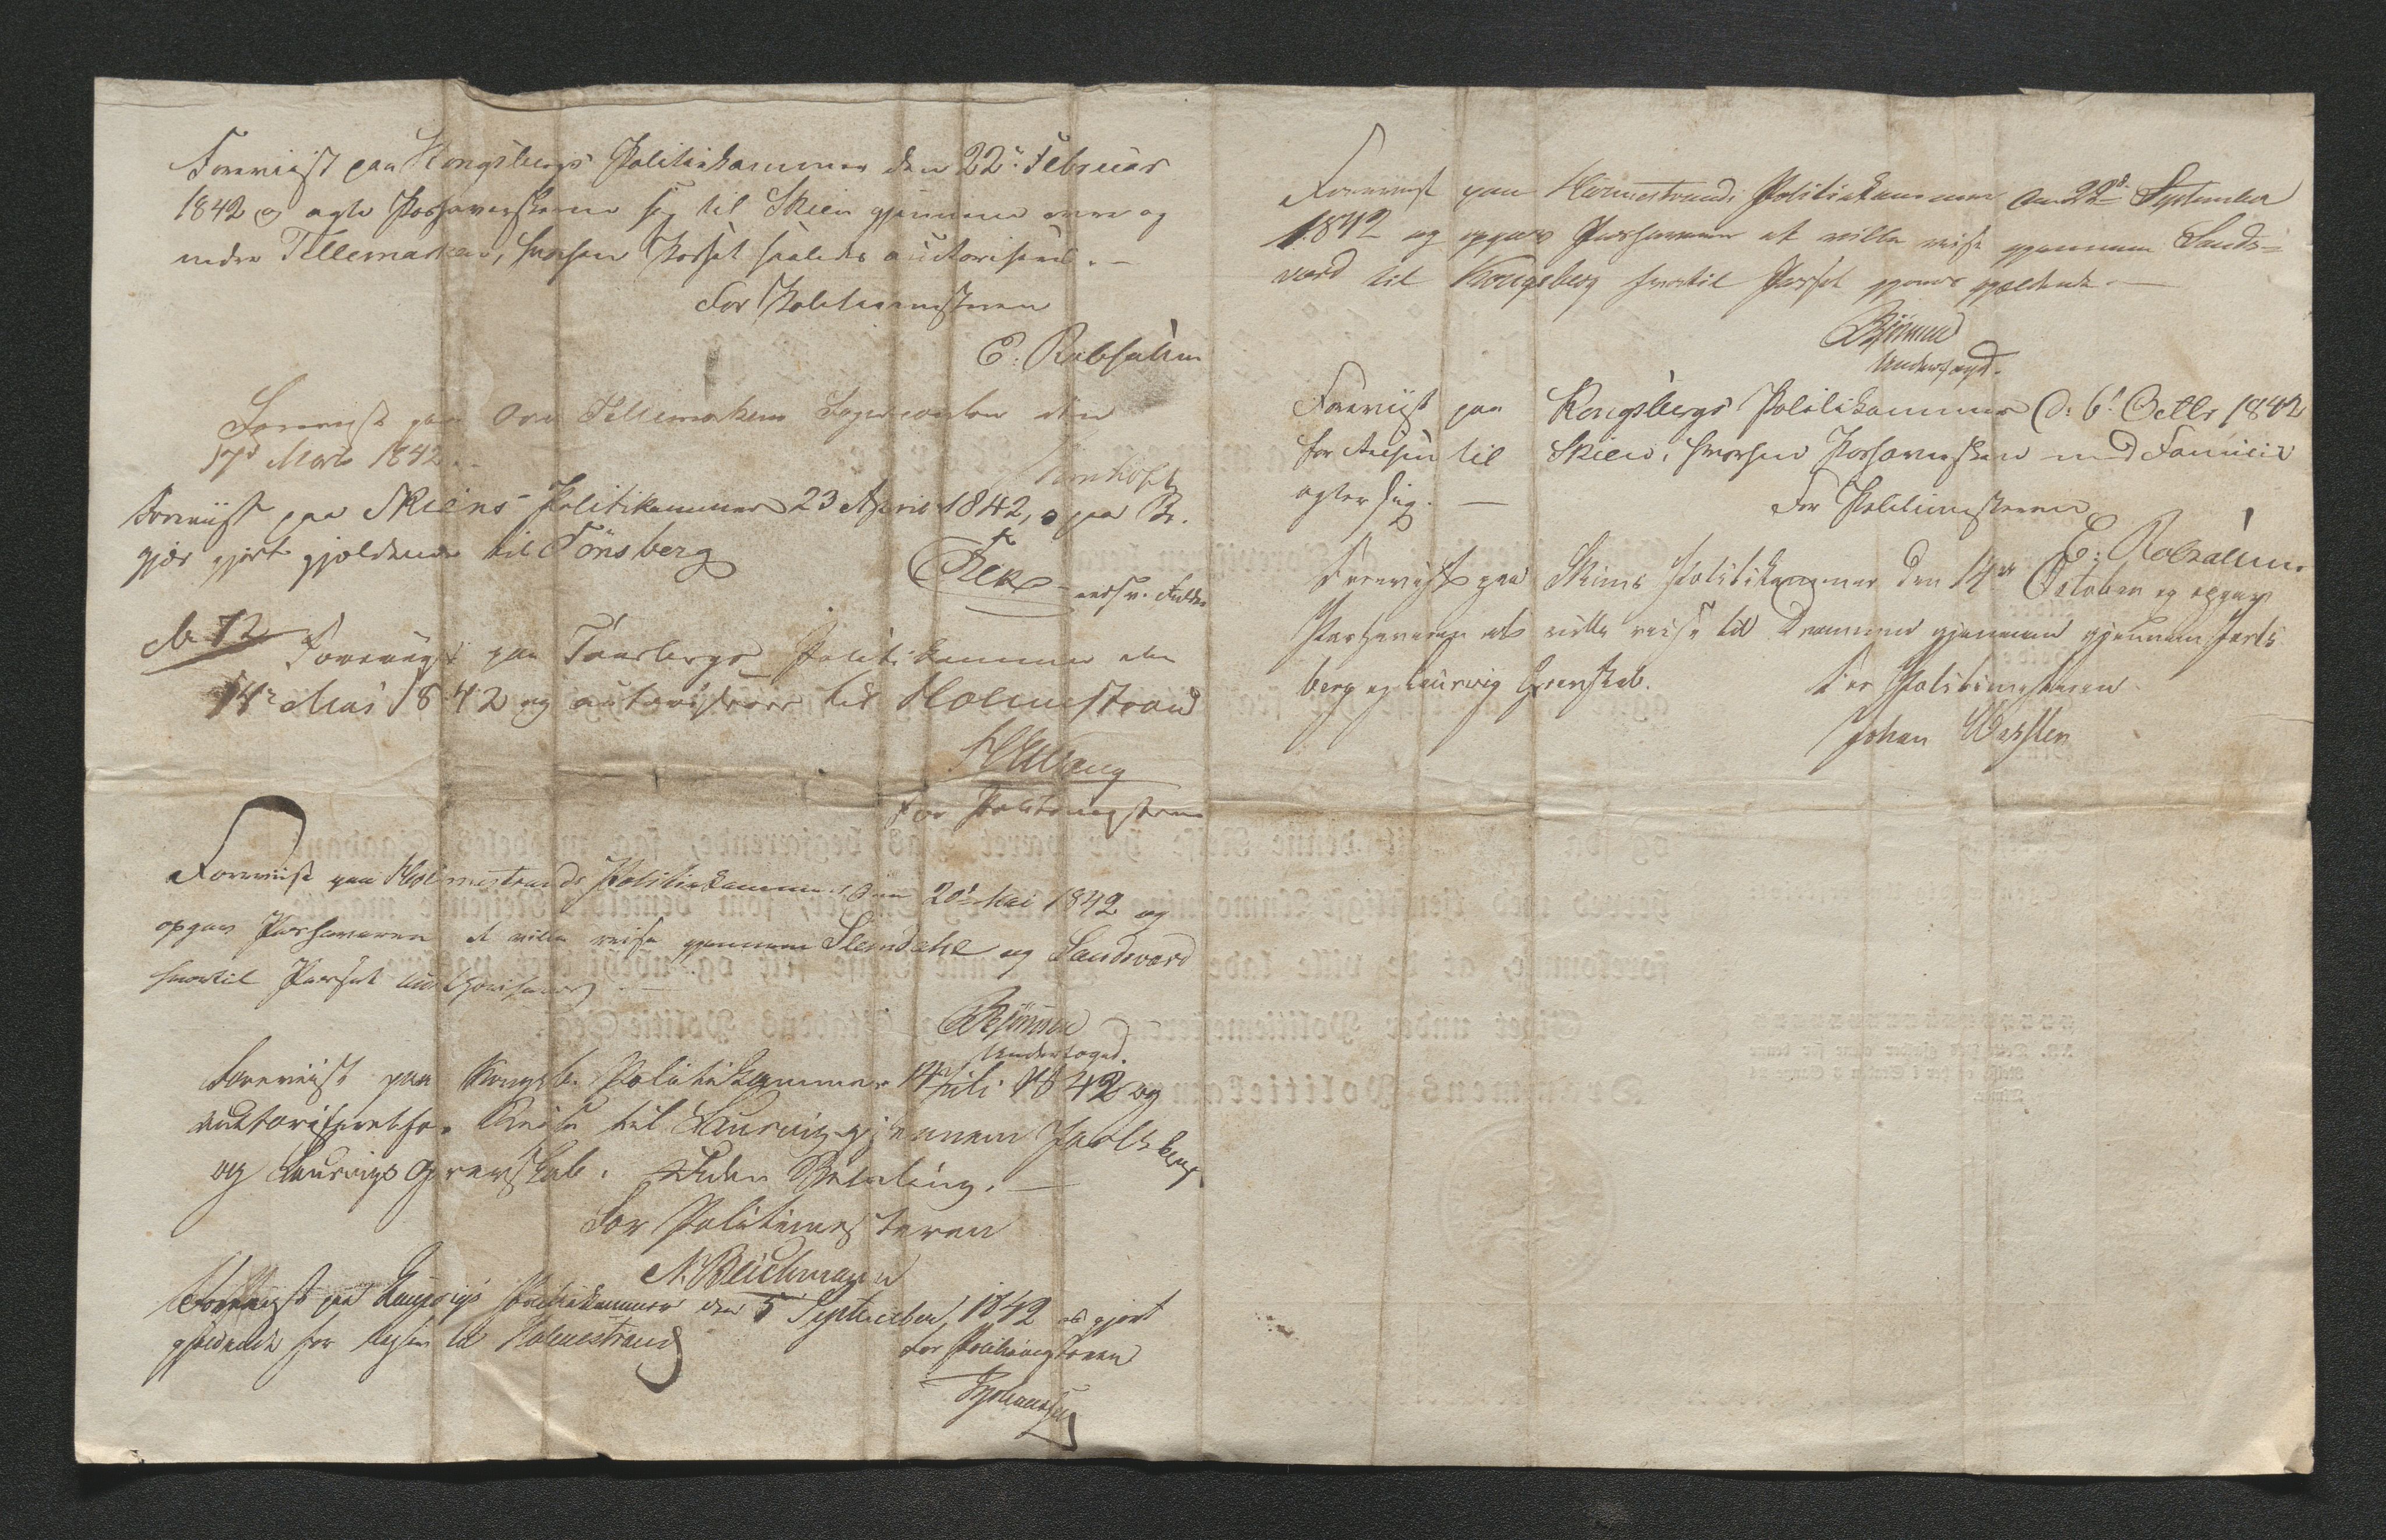 Foreviist paa Kongsbergs Politiekammer den 22de Februar
1842 og agte Passhaverskerne sig til Skien gjennem øvre og
nedre Tellemarken, hvorhen Passet saaledes auctoriseres. —
For Politiemesteren
E: Robsahm
Foreviist paa Øvre Tellemarkens Fogedcontor den
17d Marts 1842.
Foreviist paa Skiens Politikammer 23 April 1842, og paa
gjort gjældende til Tönsberg
No 72
Foreviist paa Tønsbergs Politikammer den
14de Mai 1842 og autoriseres til Holmestrand
For Politiemesteren
Foreviist paa Holmestrands Politiekammer den 20de Mai 1842 og
opgav Passhaveren at ville reise gjennem og Sandsværd
hvortil Passet authoriseres —
Bjönnes
Underfoged.
Foreviist paa Kongsb. Politikammer 14 Juli 1842 og
auktoriseret for Reise til Laurvig gjennem Jarlsberg
og Laurvigs Grevskab. Uden Betaling. —
For Politimesteren
N. Beichmann
Foreviist paa Laurvigs Politikammer den 5 September 1842 og gjort
gjældende for Reisen til Holmestrand
For Politimesteren
Foreviist paa Holmestrands Politiekammer den 22de September
1842 og opgav Passhaveren at ville reise gjennem Sands-
værd til Kongsberg hvortil Passet gjøres gjældende. —
Bjönnes
Underfogd.
Foreviist paa Kongsbergs Politikammer d: 6t Octbr 1842
for Reisen til Skien, hvorhen Passhaversken med Familie
agter sig. —
For Politimesteren
E: Robsahm
Foreviist paa Skiens Politikammer den 14de October og opgav
Passhaveren at ville reise til Drammen gjennem gjennem Jarls-
berg og Laurvig Grevskab.
For Politimesteren
Johan